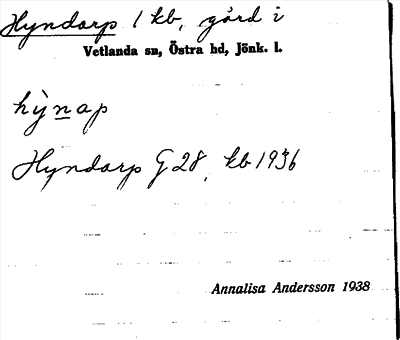 Hyndarp 1 kb, gård i
Vetlanda sn, Östra hd, Jönk. l.
hỳnap
Hyndarp G 28, kb 1936
Annalisa Andersson 1938